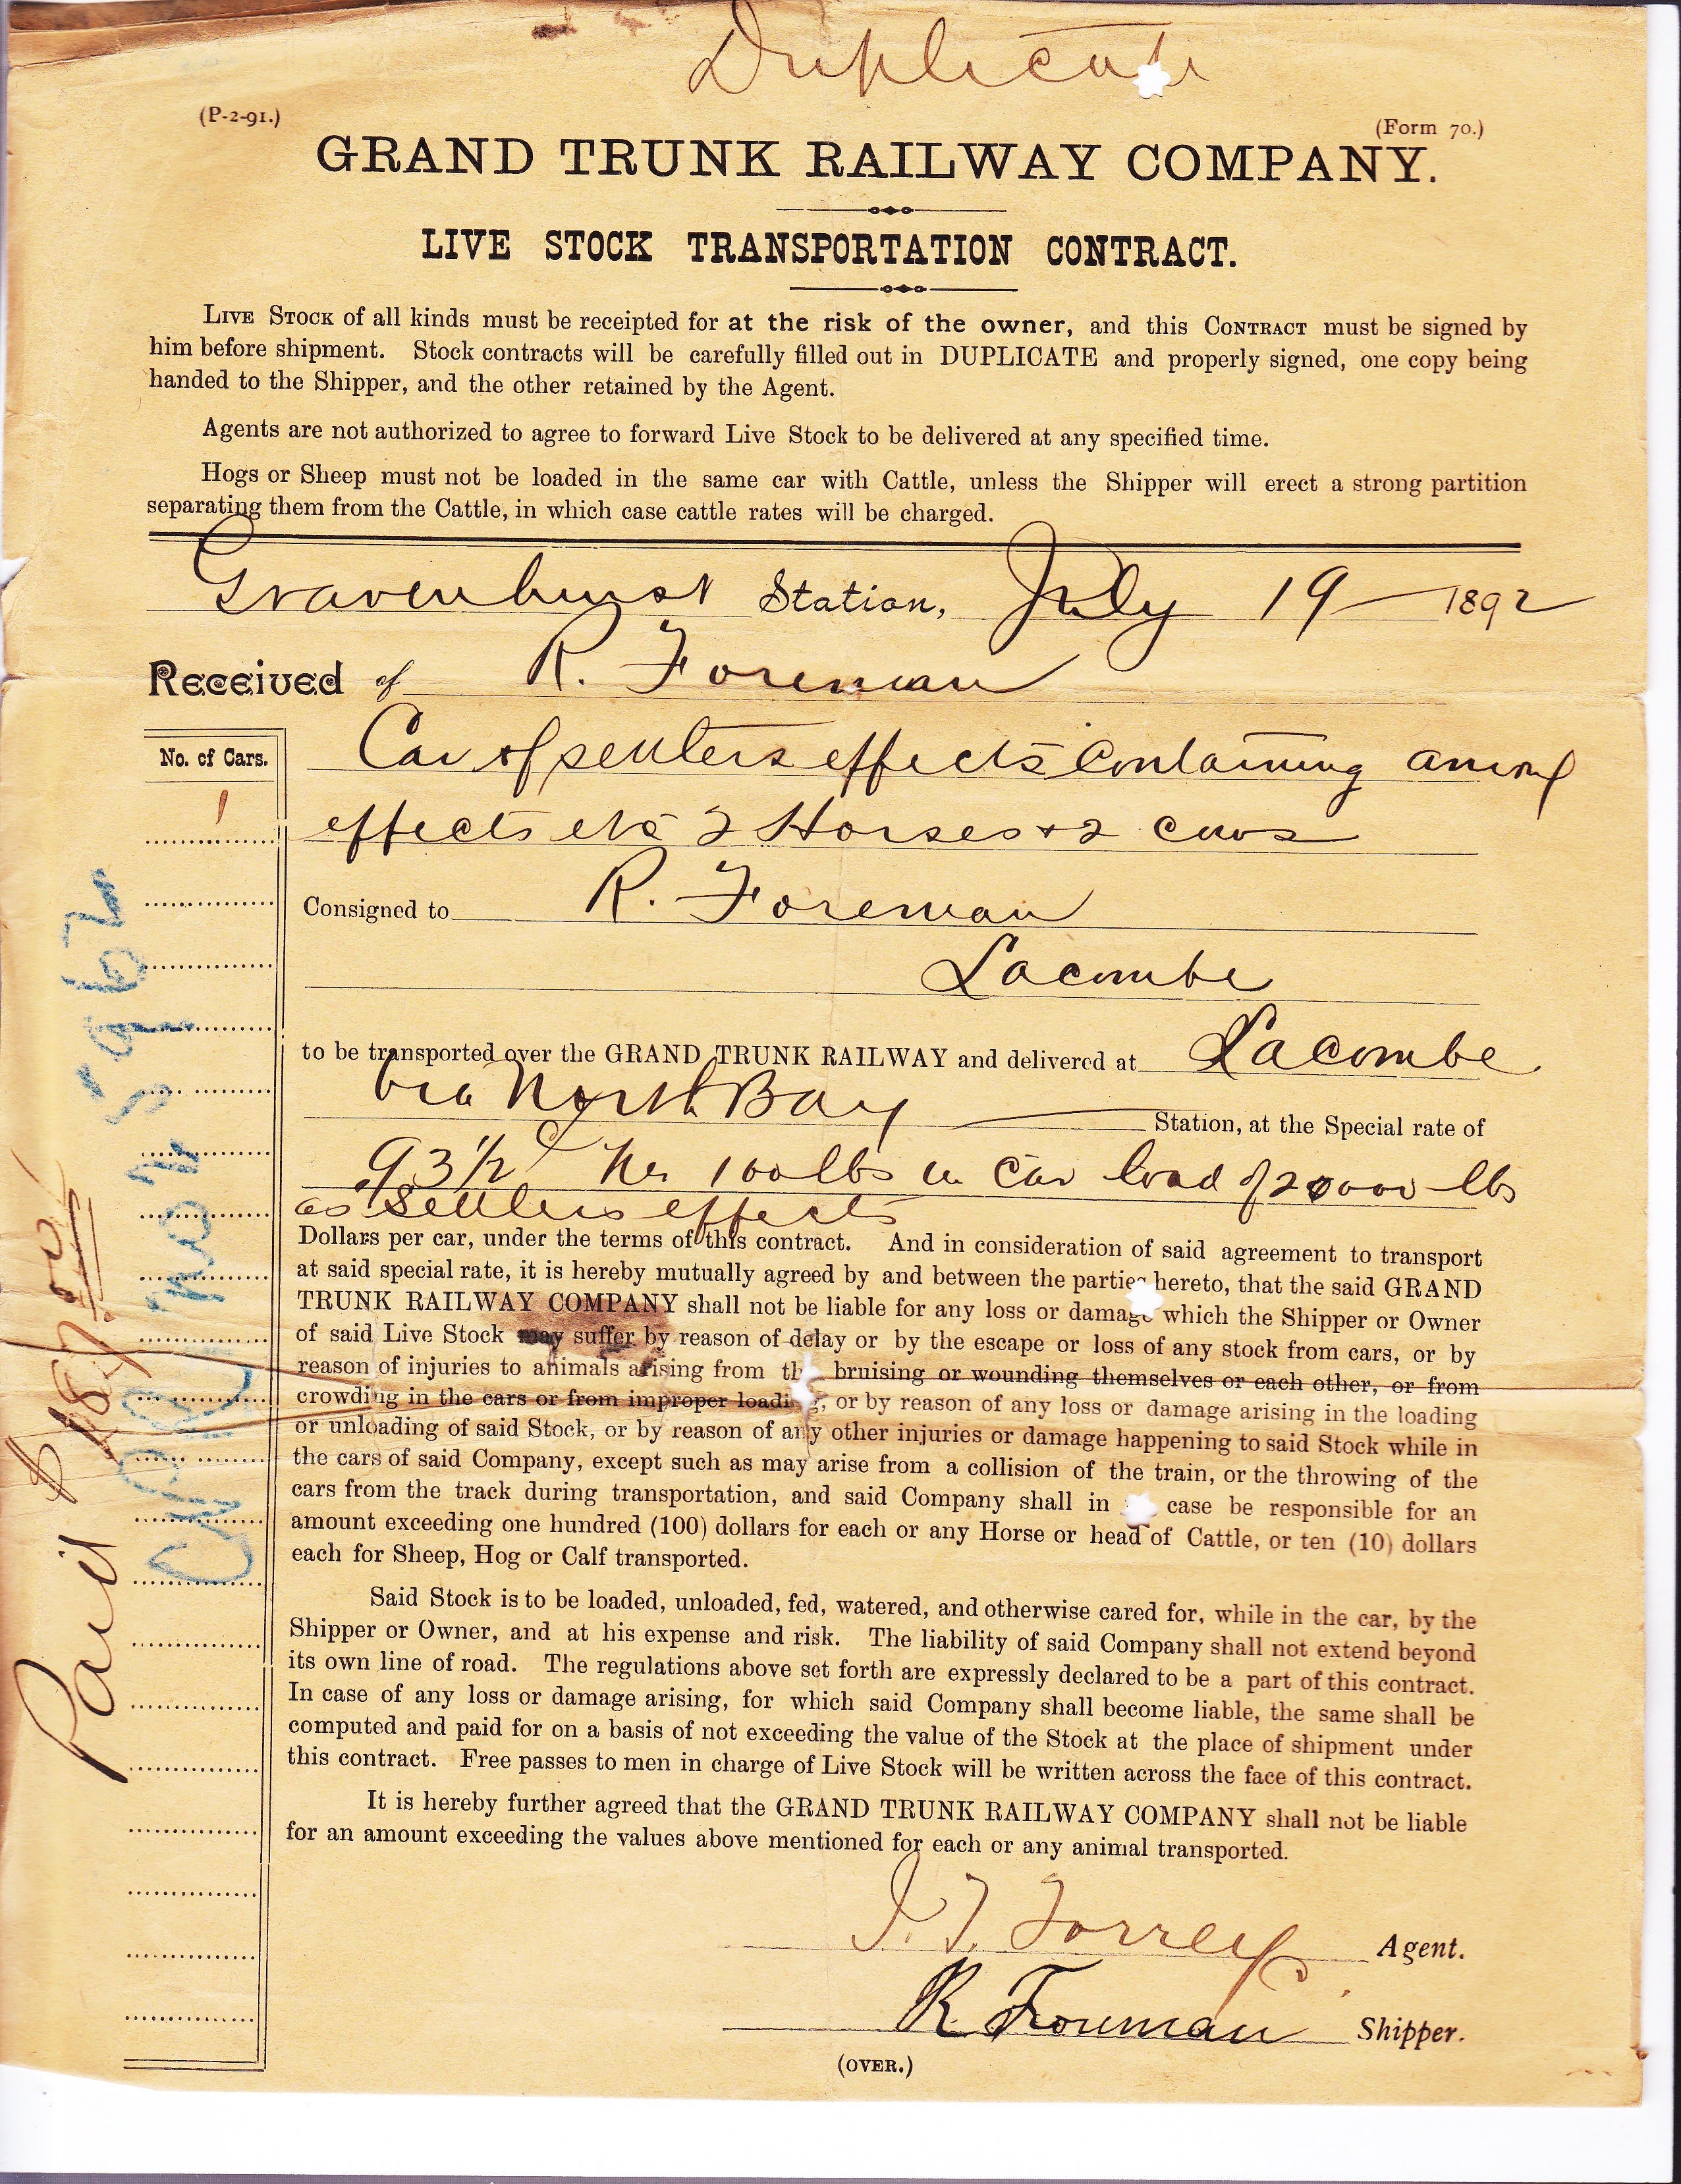 Duplicate
(P-2-91.)
(Form 70.)
GRAND TRUNK RAILWAY COMPANY.
LIVE STOCK TRANSPORTATION CONTRACT.
LIVE STOCK of all kinds must be receipted for at the risk of the owner, and this CONTRACT must be signed by
him before shipment. Stock contracts will be carefully filled out in DUPLICATE and properly signed, one copy being
handed to the Shipper, and the other retained by the Agent.
Agents are not authorized to agree to forward Live Stock to be delivered at any specified time.
Hogs or Sheep must not be loaded in the same car with Cattle, unless the Shipper will erect a strong partition
separating them from the Cattle, in which case cattle rates will be charged.
Gravenhurst Station, July 19 1892
Received of R. Foreman
No. of Cars.
1
Car of settlers effects containing among
effects 2 Horses + 2 cows
Consigned to R. Foreman
Lacombe
to be transported over the GRAND TRUNK RAILWAY and delivered at Lacombe
via North Bay Station, at the Special rate of
93 1/2 c per 100 lbs in car load of 20000 lbs
as settlers effects
Dollars per car, under the terms of this contract. And in consideration of said agreement to transport
at said special rate, it is hereby mutually agreed by and between the parties hereto, that the said GRAND
TRUNK RAILWAY COMPANY shall not be liable for any loss or damage which the Shipper or Owner
of said Live Stock may suffer by reason of delay or by the escape or loss of any stock from cars, or by
reason of injuries to animals arising from th bruising or wounding themselves or each other, or from
crowding in the cars or from improper loading, or by reason of any loss or damage arising in the loading
or unloading of said Stock, or by reason of any other injuries or damage happening to said Stock while in
the cars of said Company, except such as may arise from a collision of the train, or the throwing of the
cars from the track during transportation, and said Company shall in case be responsible for an
amount exceeding one hundred (100) dollars for each or any Horse or head of Cattle, or ten (10) dollars
each for Sheep, Hog or Calf transported.
Said Stock is to be loaded, unloaded, fed, watered, and otherwise cared for, while in the car, by the
Shipper or Owner, and at his expense and risk. The liability of said Company shall not extend beyond
its own line of road. The regulations above set forth are expressly declared to be a part of this contract.
In case of any loss or damage arising, for which said Company shall become liable, the same shall be
computed and paid for on a basis of not exceeding the value of the Stock at the place of shipment under
this contract. Free passes to men in charge of Live Stock will be written across the face of this contract.
It is hereby further agreed that the GRAND TRUNK RAILWAY COMPANY shall not be liable
for an amount exceeding the values above mentioned for each or any animal transported.
Agent.
R. Foreman Shipper.
(OVER.)
Paid $187.00